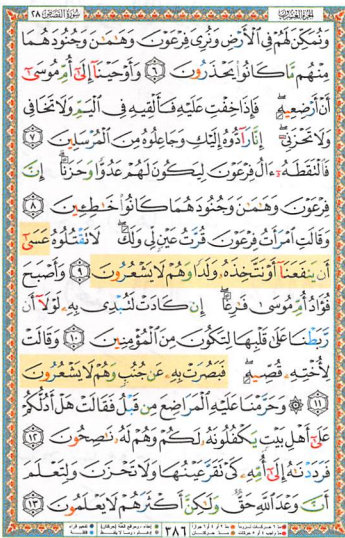 الجزء العشرون سورة القصص ٢٨
وَنُمَكِّنَ لَهُمْ فِي الْأَرْضِ وَنُرِيَ فِرْعَوْنَ وَهَامَانَ وَجُنُودَهُمَا
مِنْهُم مَّا كَانُوا يَحْذَرُونَ ٦ وَأَوْحَيْنَا إِلَىٰ أُمِّ مُوسَىٰ
أَنْ أَرْضِعِيهِ ۖ فَإِذَا خِفْتِ عَلَيْهِ فَأَلْقِيهِ فِي الْيَمِّ وَلَا تَخَافِي
وَلَا تَحْزَنِي ۖ إِنَّا رَادُّوهُ إِلَيْكِ وَجَاعِلُوهُ مِنَ الْمُرْسَلِينَ ٧
فَالْتَقَطَهُ آلُ فِرْعَوْنَ لِيَكُونَ لَهُمْ عَدُوًّا وَحَزَنًا ۗ إِنَّ
فِرْعَوْنَ وَهَامَانَ وَجُنُودَهُمَا كَانُوا خَاطِئِينَ ٨
وَقَالَتِ امْرَأَتُ فِرْعَوْنَ قُرَّتُ عَيْنٍ لِّي وَلَكَ ۖ لَا تَقْتُلُوهُ عَسَىٰ
أَن يَنفَعَنَا أَوْ نَتَّخِذَهُ وَلَدًا وَهُمْ لَا يَشْعُرُونَ ٩ وَأَصْبَحَ
فُؤَادُ أُمِّ مُوسَىٰ فَارِغًا ۖ إِن كَادَتْ لَتُبْدِي بِهِ لَوْلَا أَن
رَّبَطْنَا عَلَىٰ قَلْبِهَا لِتَكُونَ مِنَ الْمُؤْمِنِينَ ١٠ وَقَالَتْ
لِأُخْتِهِ قُصِّيهِ ۖ فَبَصُرَتْ بِهِ عَن جُنُبٍ وَهُمْ لَا يَشْعُرُونَ
١١ ۞ وَحَرَّمْنَا عَلَيْهِ الْمَرَاضِعَ مِن قَبْلُ فَقَالَتْ هَلْ أَدُلُّكُمْ
عَلَىٰ أَهْلِ بَيْتٍ يَكْفُلُونَهُ لَكُمْ وَهُمْ لَهُ نَاصِحُونَ ١٢
فَرَدَدْنَاهُ إِلَىٰ أُمِّهِ كَيْ تَقَرَّ عَيْنُهَا وَلَا تَحْزَنَ وَلِتَعْلَمَ
أَنَّ وَعْدَ اللَّهِ حَقٌّ وَلَٰكِنَّ أَكْثَرَهُمْ لَا يَعْلَمُونَ ١٣
٣٨٦